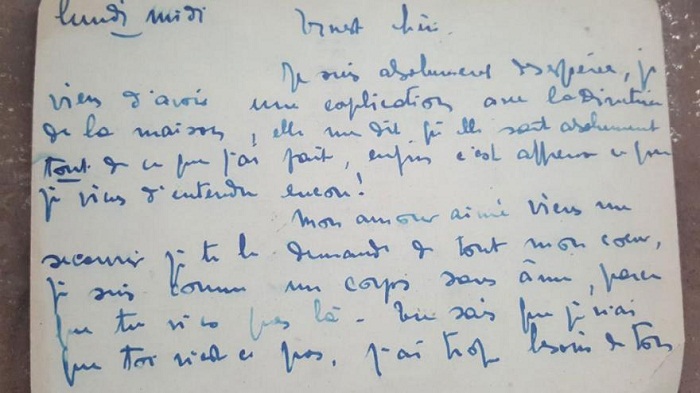 lundi midi Ernest chéri.
Je suis absolument désespérée, je
viens d'avoir une explication avec la Directrice
de la maison, elle me dit qu'elle sait absolument
tout de ce que j'ai fait, enfin c'est affreux ce que
je viens d'entendre encore!
Mon amour aimé viens me
secourir je te le demande de tout mon coeur,
je suis comme un corps sans âme, parce
que tu n'es pas là - Tu sais que je n'ai
que toi n'est ce pas, j'ai trop besoin de ton